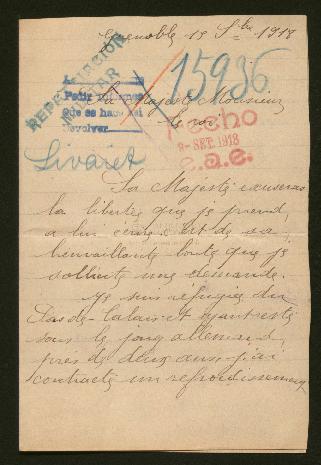 Grenoble 15 1918
REPATRIACIÓN
MILITAR
Pedir informes
devolver
15936
A Sa Majesté Monsieur
le roi
Hecho
SET. 1918
e.a.e.
Livaret
Sa Majesté excusera
la liberté que je prend,
a lui écrire c'est de sa
bienveillante bonté que je
sollicite une demande.
Je suis réfugiée du
Pas-de-Calais et ayant été
sous le joug allemand,
près de deux ans j'ai
contracté un refroidissement